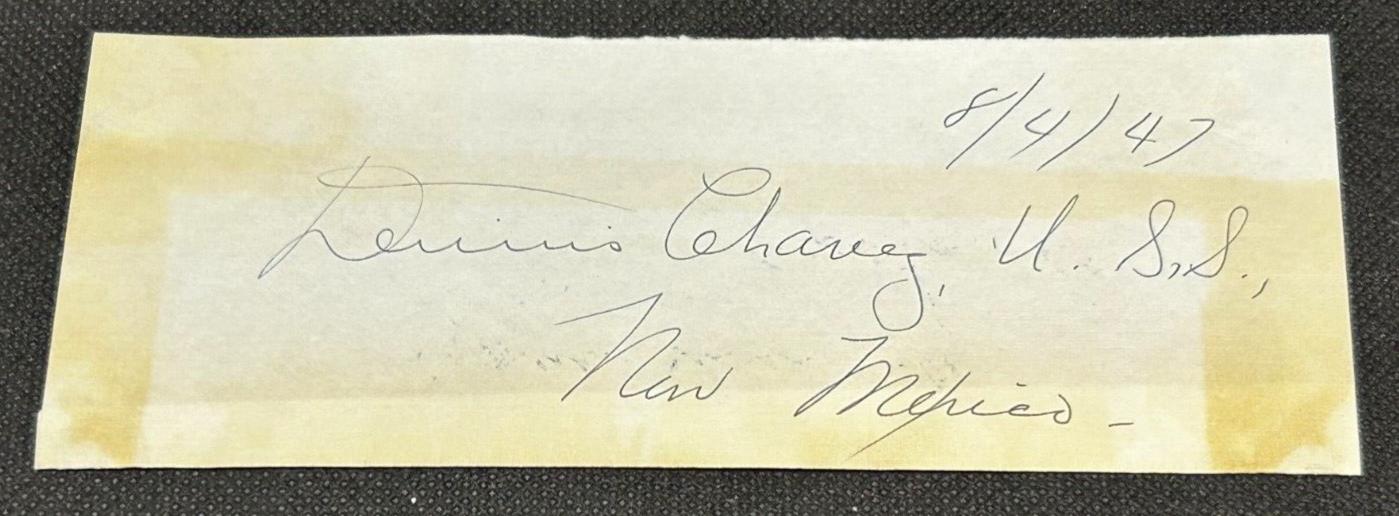 8/4/47
Dennis Chavez, U. S.S.,
New Mexico -